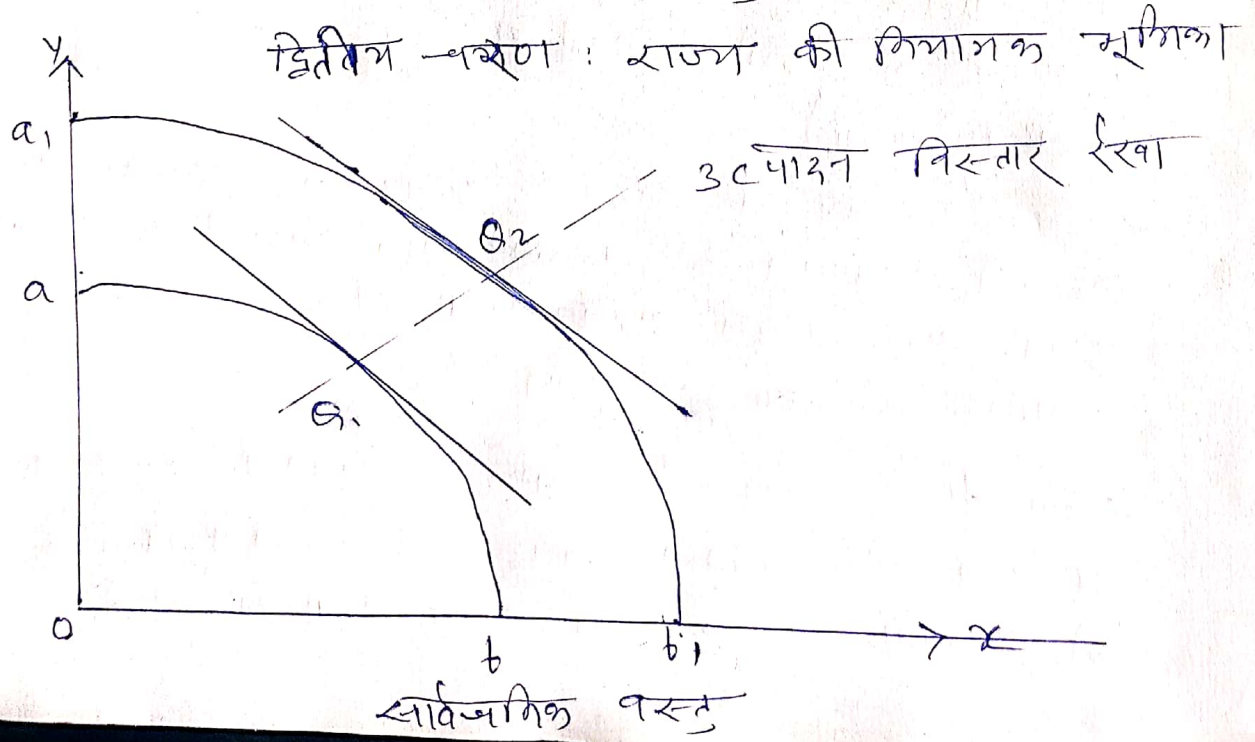 द्वितिय चरण : राज्य की नियामक भूमिका
y
a₁
उत्पादन विस्तार रेखा
Q₂
a
Q₁
0
b
b₁
x
सार्वजनिक वस्तु